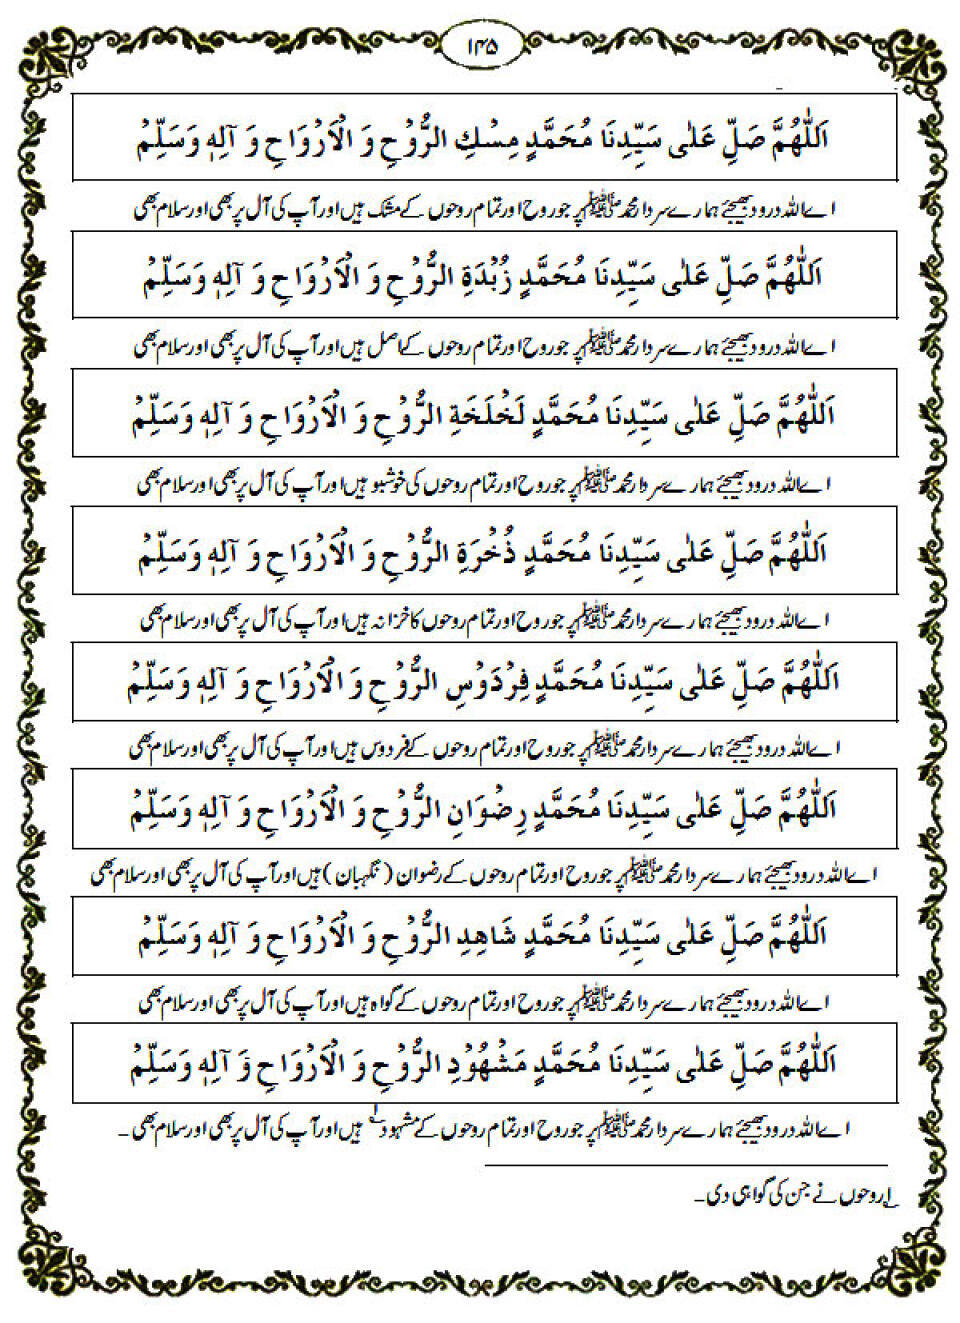 ۱۴۵
اَللّٰهُمَّ صَلِّ عَلٰی سَیِّدِنَا مُحَمَّدٍ مِسْكِ الرُّوْحِ وَ الْاَرْوَاحِ وَ آلِهٖ وَسَلِّمْ
اے اللہ درود بھیجئے ہمارے سردار محمد ﷺ پر جو روح اور تمام روحوں کے مشک ہیں اور آپ کی آل پر بھی اور سلام بھی
اَللّٰهُمَّ صَلِّ عَلٰی سَیِّدِنَا مُحَمَّدٍ زُبْدَةِ الرُّوْحِ وَ الْاَرْوَاحِ وَ آلِهٖ وَسَلِّمْ
اے اللہ درود بھیجئے ہمارے سردار محمد ﷺ پر جو روح اور تمام روحوں کے اصل ہیں اور آپ کی آل پر بھی اور سلام بھی
اَللّٰهُمَّ صَلِّ عَلٰی سَیِّدِنَا مُحَمَّدٍ لَخْلَخَةِ الرُّوْحِ وَ الْاَرْوَاحِ وَ آلِهٖ وَسَلِّمْ
اے اللہ درود بھیجئے ہمارے سردار محمد ﷺ پر جو روح اور تمام روحوں کی خوشبو ہیں اور آپ کی آل پر بھی اور سلام بھی
اَللّٰهُمَّ صَلِّ عَلٰی سَیِّدِنَا مُحَمَّدٍ ذُخْرَةِ الرُّوْحِ وَ الْاَرْوَاحِ وَ آلِهٖ وَسَلِّمْ
اے اللہ درود بھیجئے ہمارے سردار محمد ﷺ پر جو روح اور تمام روحوں کا خزانہ ہیں اور آپ کی آل پر بھی اور سلام بھی
اَللّٰهُمَّ صَلِّ عَلٰی سَیِّدِنَا مُحَمَّدٍ فِرْدَوْسِ الرُّوْحِ وَ الْاَرْوَاحِ وَ آلِهٖ وَسَلِّمْ
اے اللہ درود بھیجئے ہمارے سردار محمد ﷺ پر جو روح اور تمام روحوں کے فردوس ہیں اور آپ کی آل پر بھی اور سلام بھی
اَللّٰهُمَّ صَلِّ عَلٰی سَیِّدِنَا مُحَمَّدٍ رِضْوَانِ الرُّوْحِ وَ الْاَرْوَاحِ وَ آلِهٖ وَسَلِّمْ
اے اللہ درود بھیجئے ہمارے سردار محمد ﷺ پر جو روح اور تمام روحوں کے رضوان (نگہبان) ہیں اور آپ کی آل پر بھی اور سلام بھی
اَللّٰهُمَّ صَلِّ عَلٰی سَیِّدِنَا مُحَمَّدٍ شَاهِدِ الرُّوْحِ وَ الْاَرْوَاحِ وَ آلِهٖ وَسَلِّمْ
اے اللہ درود بھیجئے ہمارے سردار محمد ﷺ پر جو روح اور تمام روحوں کے گواہ ہیں اور آپ کی آل پر بھی اور سلام بھی
اَللّٰهُمَّ صَلِّ عَلٰی سَیِّدِنَا مُحَمَّدٍ مَشْهُوْدِ الرُّوْحِ وَ الْاَرْوَاحِ وَ آلِهٖ وَسَلِّمْ
اے اللہ درود بھیجئے ہمارے سردار محمد ﷺ پر جو روح اور تمام روحوں کے مشہود ۱؂ ہیں اور آپ کی آل پر بھی اور سلام بھی ۔
۱؂ روحوں نے جن کی گواہی دی۔